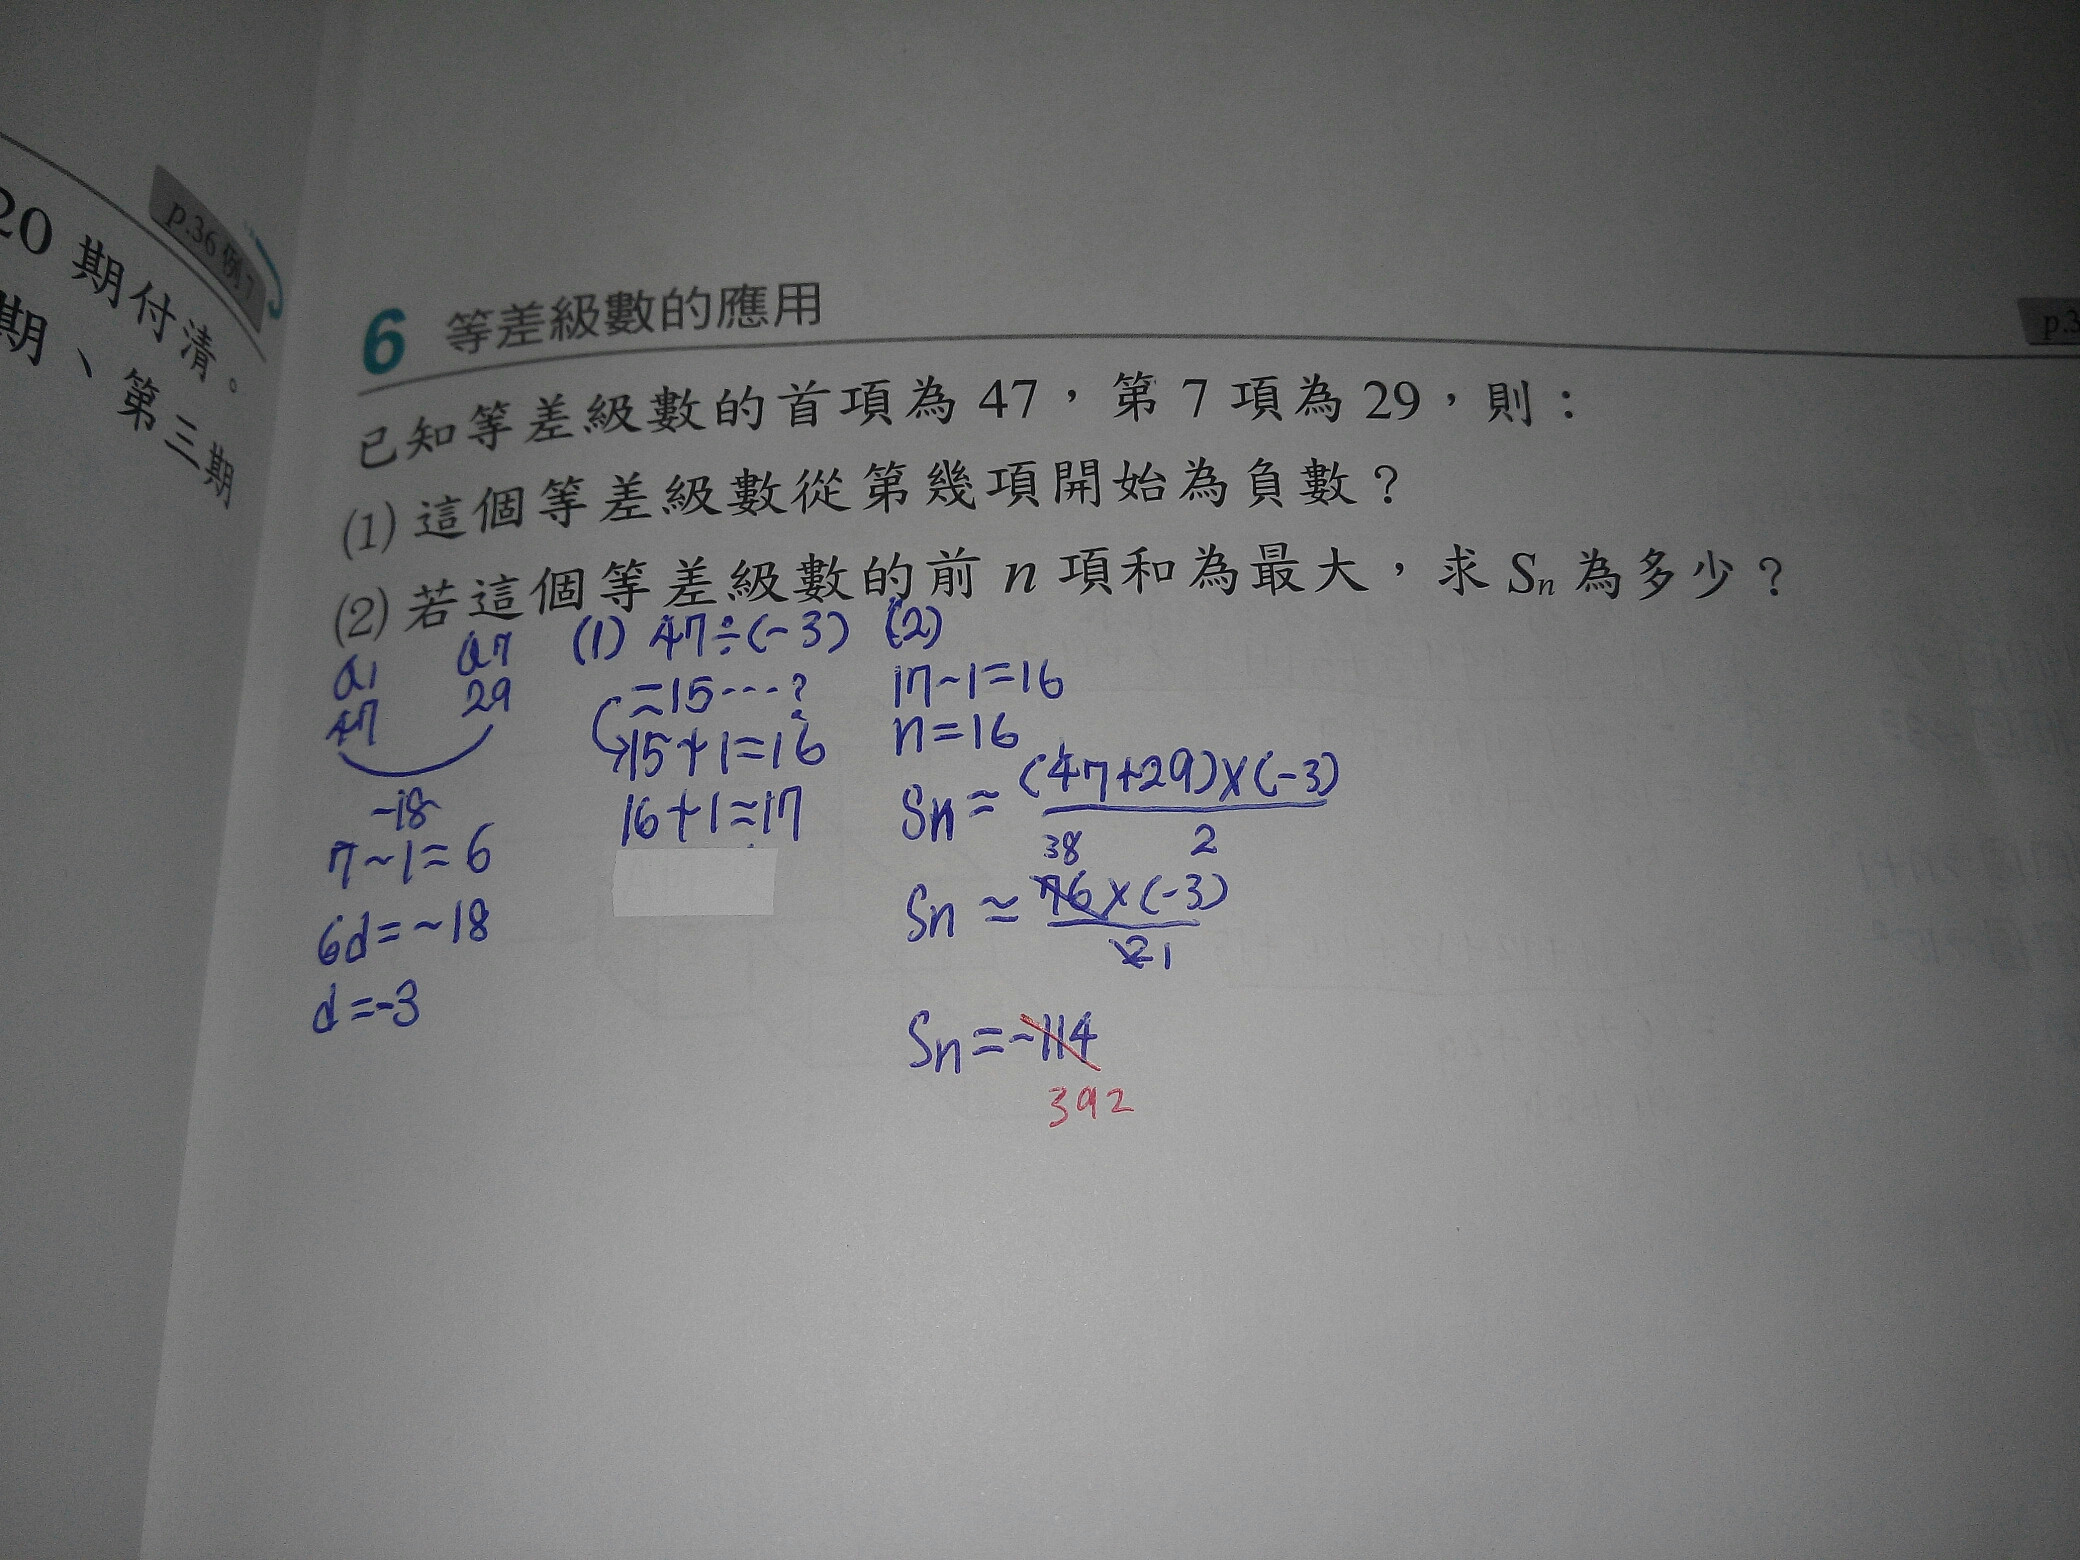 20 期付清。
期、第三期
p.36 例7
6 等差級數的應用
p.3
已知等差級數的首項為 47，第 7 項為 29，則：
(1) 這個等差級數從第幾項開始為負數？
(2) 若這個等差級數的前 n 項和為最大，求 Sn 為多少？
a1 a7
47 29
-18
7-1=6
6d=-18
d=-3
(1) 47÷(-3)
=15…?
15+1=16
16+1=17
(2)
17-1=16
n=16
Sn=(47+29)×(-3)
2
38
Sn=76×(-3)
2 1
Sn=-114
392